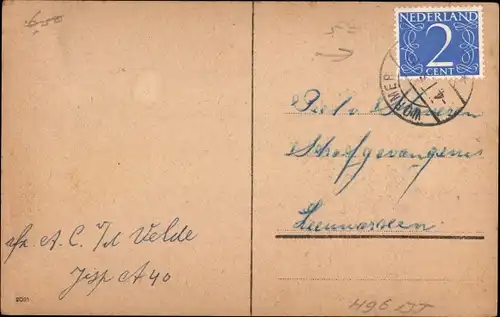 650
NEDERLAND
2
CENT
WORMER
Piet v
Strafgevangenis
Leeuwarden
afz. A. C. v/d Velde
Jisp A 40
2021
496